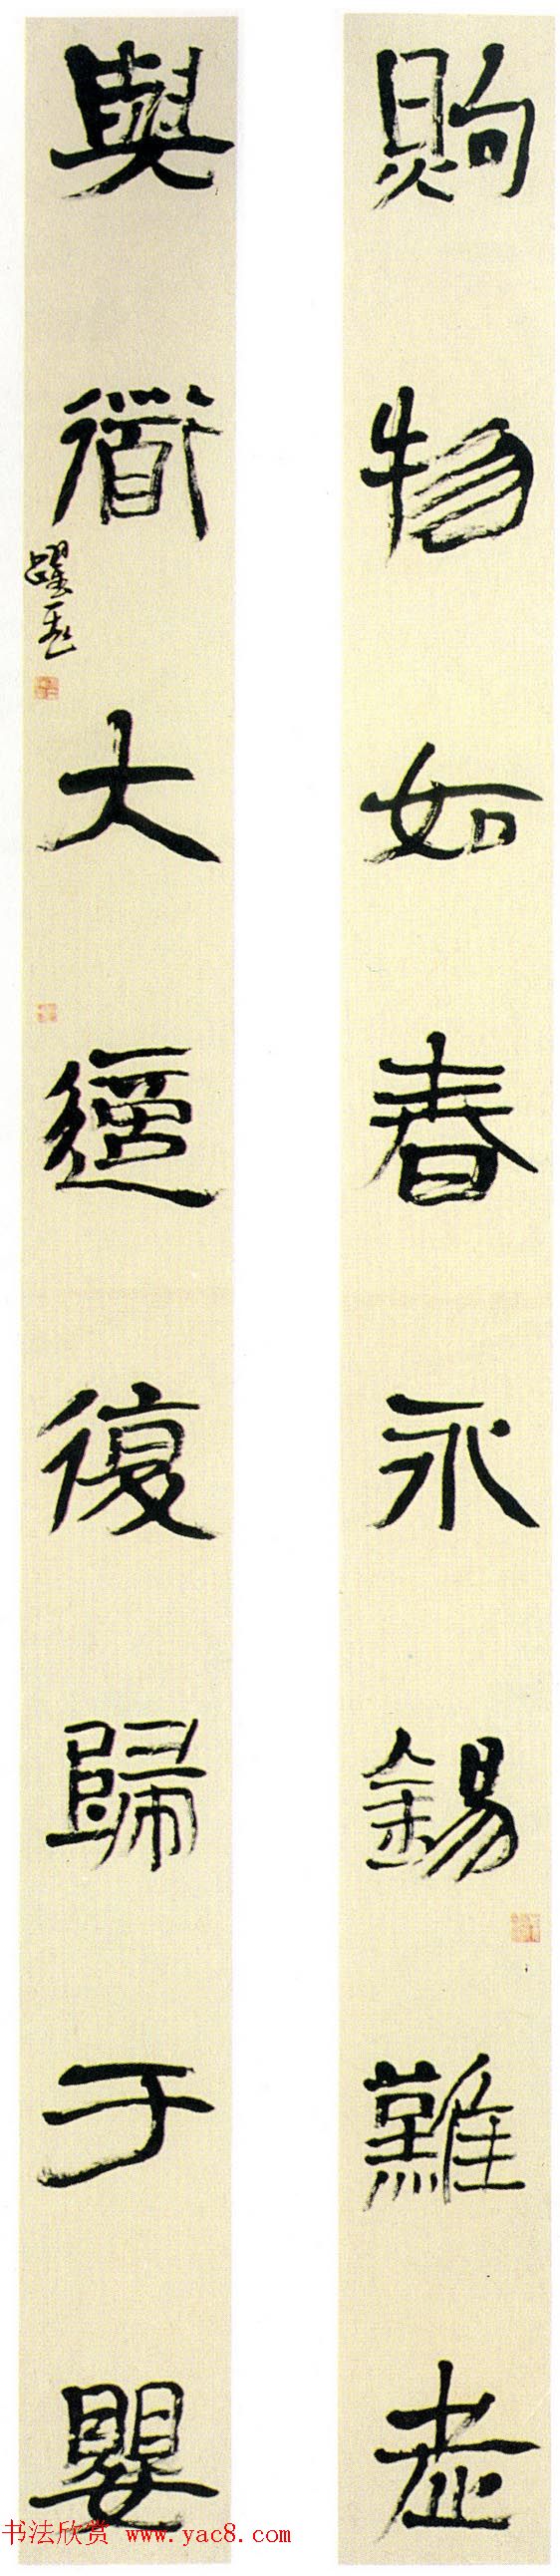 煦物如春永錫難老
與衜大適復歸于嬰
书法欣赏 www.yac8.com